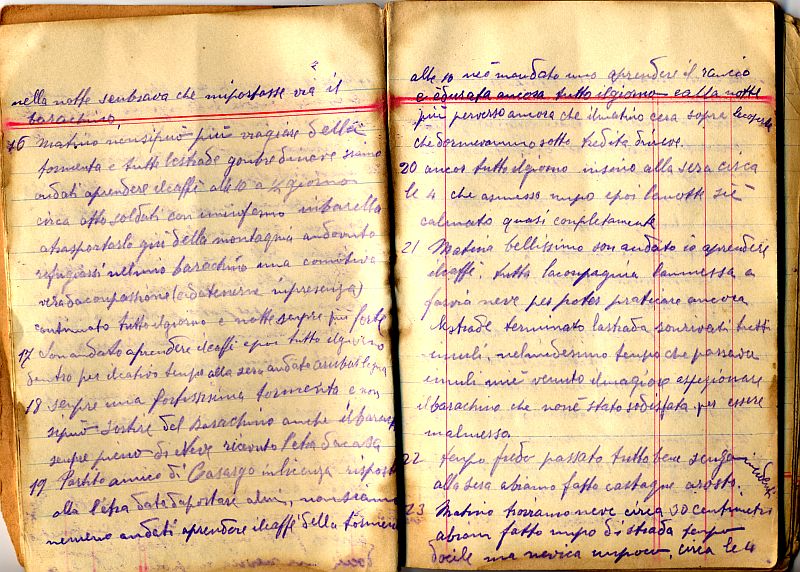 nella notte senbrava che miportasse via il
barachino,
16 Matino nonsipuò più viagiare della
tormenta e tutte lestrade gonbre dineve siamo
andati aprendere ilcaffè alle 10 a ½ giorno
circa otto soldati con uninfermo inbarella
atrasportarlo giù della montagna andovuto
refugiarsi nelmio barachino una comitiva
veradacompassione (
continuato tutto ilgiorno e notte senpre più forte
17 Son andato aprendere ilcaffè e poi tutto ilgiorno
dentro per ilcativo tempo alla sera andato arubar legna
18 senpre una fortissima tormenta e non
sipuò sortire del Barachino anche ilbarach
senpre pieno di Neve ricevuto letra dacasa
19 Partito amico di Casargo inlicenza risposto
alla letra data daportare alui, nonsiamo
nemeno andati aprendere ilcaffè della tormenta
alle 10 neò mandato uno aprendere il rancio
e àdurata ancora tutto ilgiorno e alla notte
più perverso ancora che ilmatino cera sopra lecoperte
che dormevamo sotto tredita dineve.
20 ancor tutto ilgiorno insino alla sera circa
le 4 che asmesso unpo epoi lanotte siè
calmato quasi completamente
21 Matina bellissimo son andato io aprendere
ilcaffè. tutta lacompagnia lanmessa a
far via neve per poter praticare ancora
lestrade terminato lastrada sonrivati tutti
imuli, nelmedesimo tempo che passava
imuli miè venuto ilmagiore
ilbarachino che nonè stato sodisfata per essere
malmessa
22 tenpo fredo passato tutto bene senza
alla sera abiamo fatto castagne arosto.
23 Matino troviamo neve circa 30 centimetri
abiam fatto unpo di strada tenpo
docile ma nevica unpoco, circa le 4